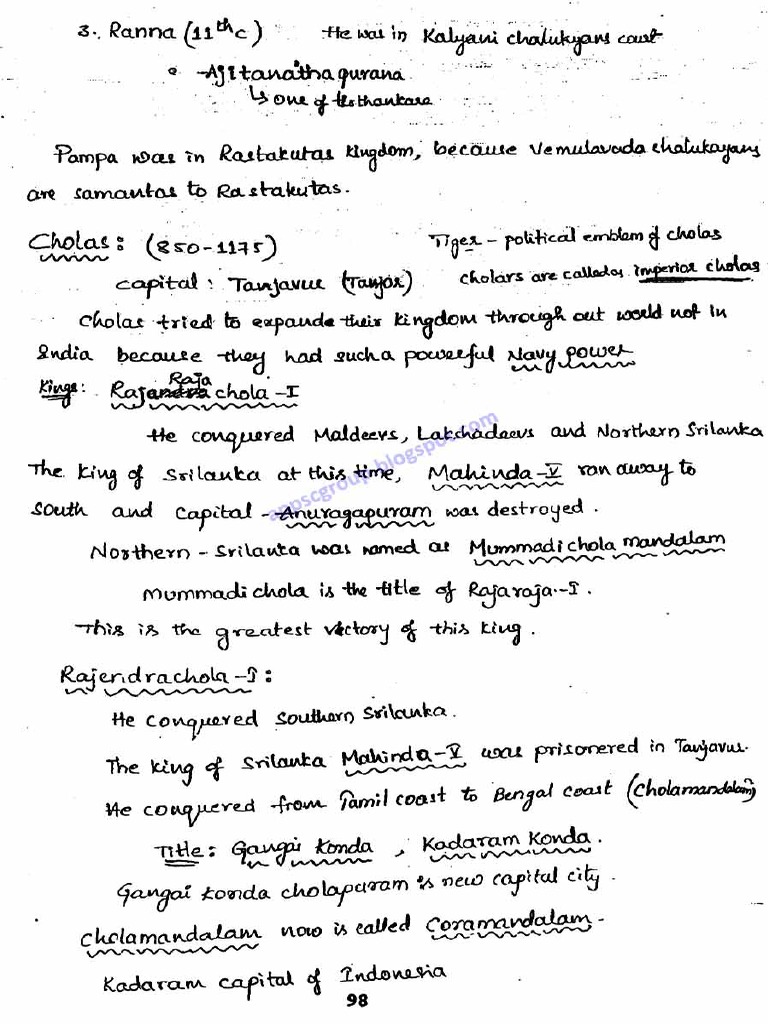 3. Ranna (11th c) He was in Kalyani chalukyans court
• Ajitanatha purana
↳ one of tirthankara
Pampa was in Rastakutas kingdom, because Vemulavada chalukayans
are samantas to Rastakutas.
Cholas: (850-1175) Tiger - political emblem of cholas
capital: Tanjavur (Tanjor) cholars are called as imperior cholas
Cholas tried to expande their kingdom through out world not in
India because they had such a powerful Navy power
Kings: Rajaraja chola-I
He conquered Maldeevs, Lakshadeevs and Northern Srilanka
The king of Srilanka at this time, Mahinda-V ran away to
south and capital - Anuragapuram was destroyed.
Northern - Srilanka was named as Mummadi chola mandalam
Mummadi chola is the title of Rajaraja-I.
This is the greatest victory of this king.
Rajendrachola-I:
He conquered southern Srilanka.
The king of Srilanka Mahinda-V was prisonered in Tanjavur.
He conquered from Tamil coast to Bengal coast (Cholamandalam)
Title: Gangai Konda, Kadaram Konda.
Gangai Konda cholapuram is new capital city.
cholamandalam now is called Coramandalam.
Kadaram capital of Indonesia
98
appscgroup.blogspot.com